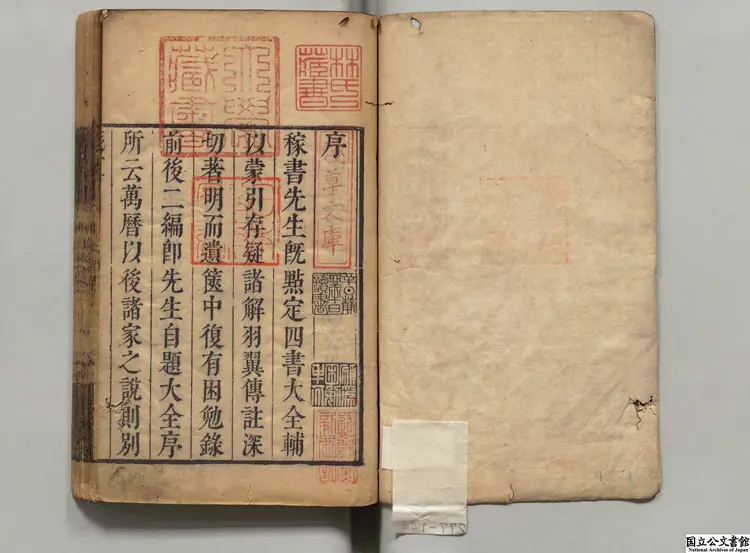 序
稼書先生既點定四書大全輔
以蒙引存疑諸解羽翼傳註深
切著明而遺篋中復有困勉錄
前後二編卽先生自題大全序
所云萬曆以後諸家之說則別
林氏
藏書
淺草文庫
国立公文書館
National Archives of Japan